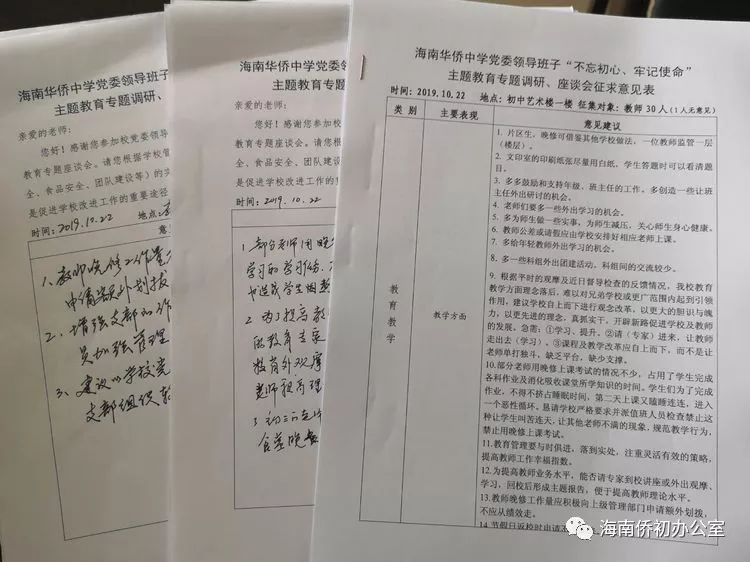 海南华侨中学党委领导班子
主题教育专题调研、
亲爱的老师:
您好!感谢您参加校党委领导
教育专题座谈会。请您根据学校管
全、食品安全、团队建设等)的实
是促进学校改进工作的重要途径
时间: 2019.10.22 地点:
意
1、教师晚修工作量
申请额外划拨
2、增强支部的作
员加强管理
3、建议以学校党
支部组织
海南华侨中学党委领导班
主题教育专题调研、
亲爱的老师:
您好!感谢您参加校党委
教育专题座谈会。请您根据学
全、食品安全、团队建设等)
是促进学校改进工作的重要
时间: 2019.10.22
1、部分老师用晚
学习的学习任务,
也造成学生
2、为了提高教
教育外观摩
老师提高理
海南华侨中学党委领导班子“不忘初心、牢记使命”
主题教育专题调研、座谈会征求意见表
时间:2019.10.22 地点:初中艺术楼一楼 征集对象:教师30人(1人无意见)
类 别 主要表现 意见建议
教育教学
教学方面
1. 片区生,晚修可借鉴其他学校做法,一位教师监管一层
(楼层)。
2. 文印室的印刷纸张尽量用白纸,学生答题时可以看清题
目。
3. 多多鼓励和支持年级、班主任的工作。多创造一些让班
主任外出研讨的机会。
4. 老师们要多一些外出学习的机会。
5. 多为师生做一些实事,为师生减压,关心师生身心健康。
6. 教师公差或请假应由学校安排好相应老师上课。
7. 多给年轻教师外出学习的机会。
8. 多一些科组外出团建活动,科组间的交流较少。
9. 根据平时的观摩及近日督导检查的反馈情况,我校教育
教学方面理念落后,难以对兄弟学校或更广范围内起到引领
作用,建议学校自上而下进行观念改革,以更大的胆识与魄
力,以更先进的理念,真抓实干,开辟新路促进学校及教师
的发展。急需:①学习、提升。②请(专家)进来,让教师
走出去(学习)、③课程及教学改革应自上而下,而不是让
老师单打独斗,缺乏平台,缺少支撑。
10.部分老师用晚修上课考试的情况不少,占用了学生完成
各科作业及消化吸收课堂所学知识的时间。学生们为了完成
作业,不得不挤占睡眠时间,第二天上课又瞌睡连连,进入
一个恶性循环。恳请学校严格要求并派值班人员检查禁止这
种让学生叫苦连天,让其他老师不满的现象,规范教学行为,
禁止用晚修上课考试。
11.教育管理要与时俱进,落到实处,注重灵活有效的策略,
提高教师工作幸福指数。
12.为提高教师业务水平,能否请专家到校讲座或外出观摩、
学习,回校后形成主题报告,便于提高教师理论水平。
13.教师晚修工作量应积极向上级管理部门申请额外划拨,
不应从绩效走。
14.节假日返校时申请
海南侨初办公室